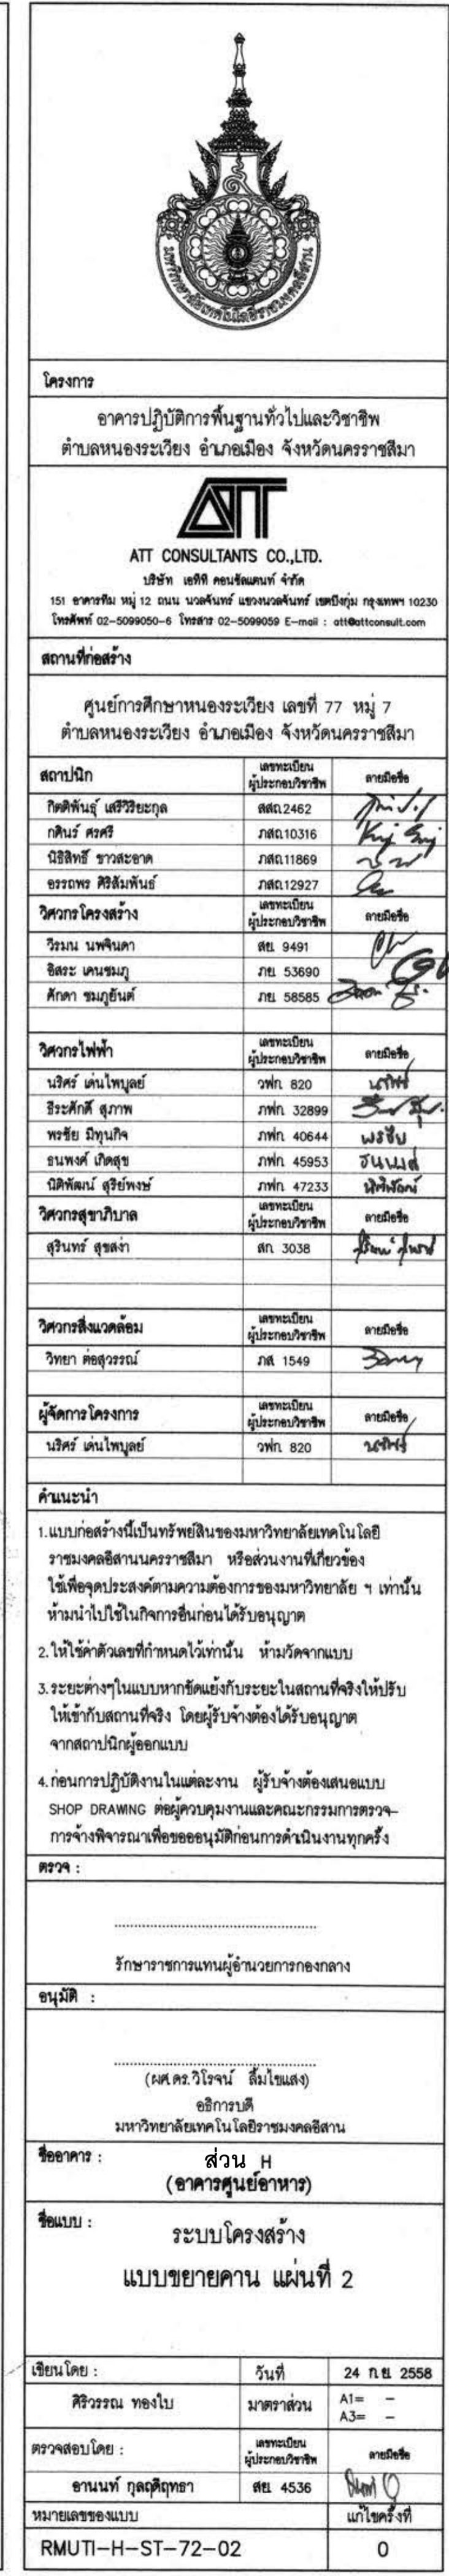 มหาวิทยาลัยเทคโนโลยีราชมงคลอีสาน
โครงการ
อาคารปฏิบัติการพื้นฐานทั่วไปและวิชาชีพ
ตำบลหนองระเวียง อำเภอเมือง จังหวัดนครราชสีมา
ATT
ATT CONSULTANTS CO.,LTD.
บริษัท เอทีที คอนซัลแตนท์ จำกัด
151 อาคารทีม หมู่ 12 ถนน นวลจันทร์ แขวงนวลจันทร์ เขตบึงกุ่ม กรุงเทพฯ 10230
โทรศัพท์ 02-5099050-6 โทรสาร 02-5099059 E-mail : att@attconsult.com
สถานที่ก่อสร้าง
ศูนย์การศึกษาหนองระเวียง เลขที่ 77 หมู่ 7
ตำบลหนองระเวียง อำเภอเมือง จังหวัดนครราชสีมา
สถาปนิก เลขทะเบียน ผู้ประกอบวิชาชีพ ลายมือชื่อ
กิตติพันธุ์ เสรีวิริยะกุล สสถ.2462
กศินร์ ศรศรี ภสถ.10316
นิธิสิทธิ์ ขาวสะอาด ภสถ.11869
อรรถพร ศิริสัมพันธ์ ภสถ.12927
วิศวกรโครงสร้าง เลขทะเบียน ผู้ประกอบวิชาชีพ ลายมือชื่อ
วีรมน นพจินดา สย. 9491
อิสระ เคนชมภู ภย. 53690
ศักดา ชมภูยันต์ ภย. 58585
วิศวกรไฟฟ้า เลขทะเบียน ผู้ประกอบวิชาชีพ ลายมือชื่อ
นริศร์ เด่นไพบูลย์ วฟก. 820
ธีระศักดิ์ สุภาพ ภฟก. 32899
พรชัย มีทุนกิจ ภฟก. 40644 พรชัย
ธนพงศ์ เกิดสุข ภฟก. 45953 ธนพงศ์
นิติพัฒน์ สุรีย์พงษ์ ภฟก. 47233 นิติพัฒน์
วิศวกรสุขาภิบาล เลขทะเบียน ผู้ประกอบวิชาชีพ ลายมือชื่อ
สุรินทร์ สุขสง่า สก. 3038
วิศวกรสิ่งแวดล้อม เลขทะเบียน ผู้ประกอบวิชาชีพ ลายมือชื่อ
วิทยา ต่อสุวรรณ์ ภส. 1549
ผู้จัดการโครงการ เลขทะเบียน ผู้ประกอบวิชาชีพ ลายมือชื่อ
นริศร์ เด่นไพบูลย์ วฟก. 820
คำแนะนำ
1.แบบก่อสร้างนี้เป็นทรัพย์สินของมหาวิทยาลัยเทคโนโลยี
ราชมงคลอีสานนครราชสีมา หรือส่วนงานที่เกี่ยวข้อง
ใช้เพื่อจุดประสงค์ตามความต้องการของมหาวิทยาลัย ฯ เท่านั้น
ห้ามนำไปใช้ในกิจการอื่นก่อนได้รับอนุญาต
2.ให้ใช้ค่าตัวเลขที่กำหนดไว้เท่านั้น ห้ามวัดจากแบบ
3.ระยะต่างๆในแบบหากขัดแย้งกับระยะในสถานที่จริงให้ปรับ
ให้เข้ากับสถานที่จริง โดยผู้รับจ้างต้องได้รับอนุญาต
จากสถาปนิกผู้ออกแบบ
4.ก่อนการปฏิบัติงานในแต่ละงาน ผู้รับจ้างต้องเสนอแบบ
SHOP DRAWING ต่อผู้ควบคุมงานและคณะกรรมการตรวจ-
การจ้างพิจารณาเพื่อขออนุมัติก่อนการดำเนินงานทุกครั้ง
ตรวจ :
รักษาราชการแทนผู้อำนวยการกองกลาง
อนุมัติ :
(ผศ.ดร.วิโรจน์ ลิ้มไขแสง)
อธิการบดี
มหาวิทยาลัยเทคโนโลยีราชมงคลอีสาน
ชื่ออาคาร : ส่วน H
(อาคารศูนย์อาหาร)
ชื่อแบบ : ระบบโครงสร้าง
แบบขยายคาน แผ่นที่ 2
เขียนโดย : วันที่ 24 ก.ย. 2558
ศิริวรรณ ทองใบ มาตราส่วน A1= - A3= -
ตรวจสอบโดย : เลขทะเบียน ผู้ประกอบวิชาชีพ ลายมือชื่อ
อานนท์ กุลฤดีฤทธา สย. 4536
หมายเลขของแบบ แก้ไขครั้งที่
RMUTI-H-ST-72-02 0